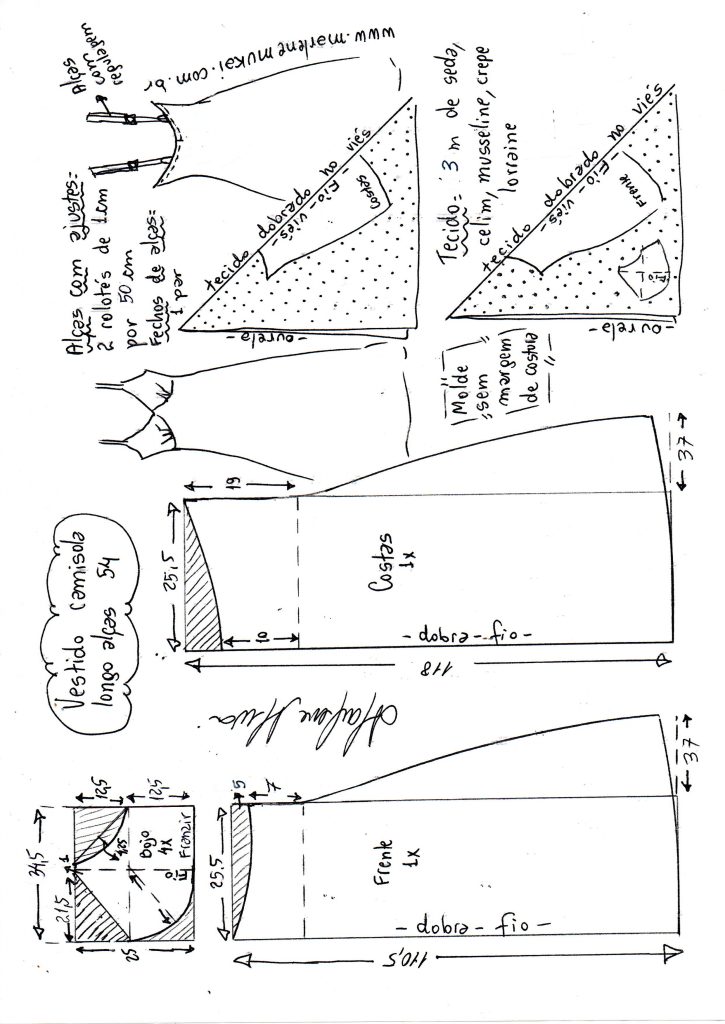 Vestido camisola
longo alças 54
Alças com ajustes=
2 rolotés de 1cm
por 50 cm
Fechos de alças=
1 par
Alças
com
regulagem
www.marlenemukai.com.br
tecido dobrado no viés
-Fio-viés-
Costas
-ourela-
Tecido= 3 m de seda,
cetim, musseline, crepe
lorraine
tecido dobrado no viés
-Fio-viés-
Frente
-ourela-
Molde
sem
margem
de costura
34,5
21,5
1
12,5
12,5
25
Bojo
4X
Fio
Franzir
25,5
5
7
Frente
1X
- dobra-fio-
110,5
37
25,5
19
10
Costas
1X
- dobra-fio-
118
37